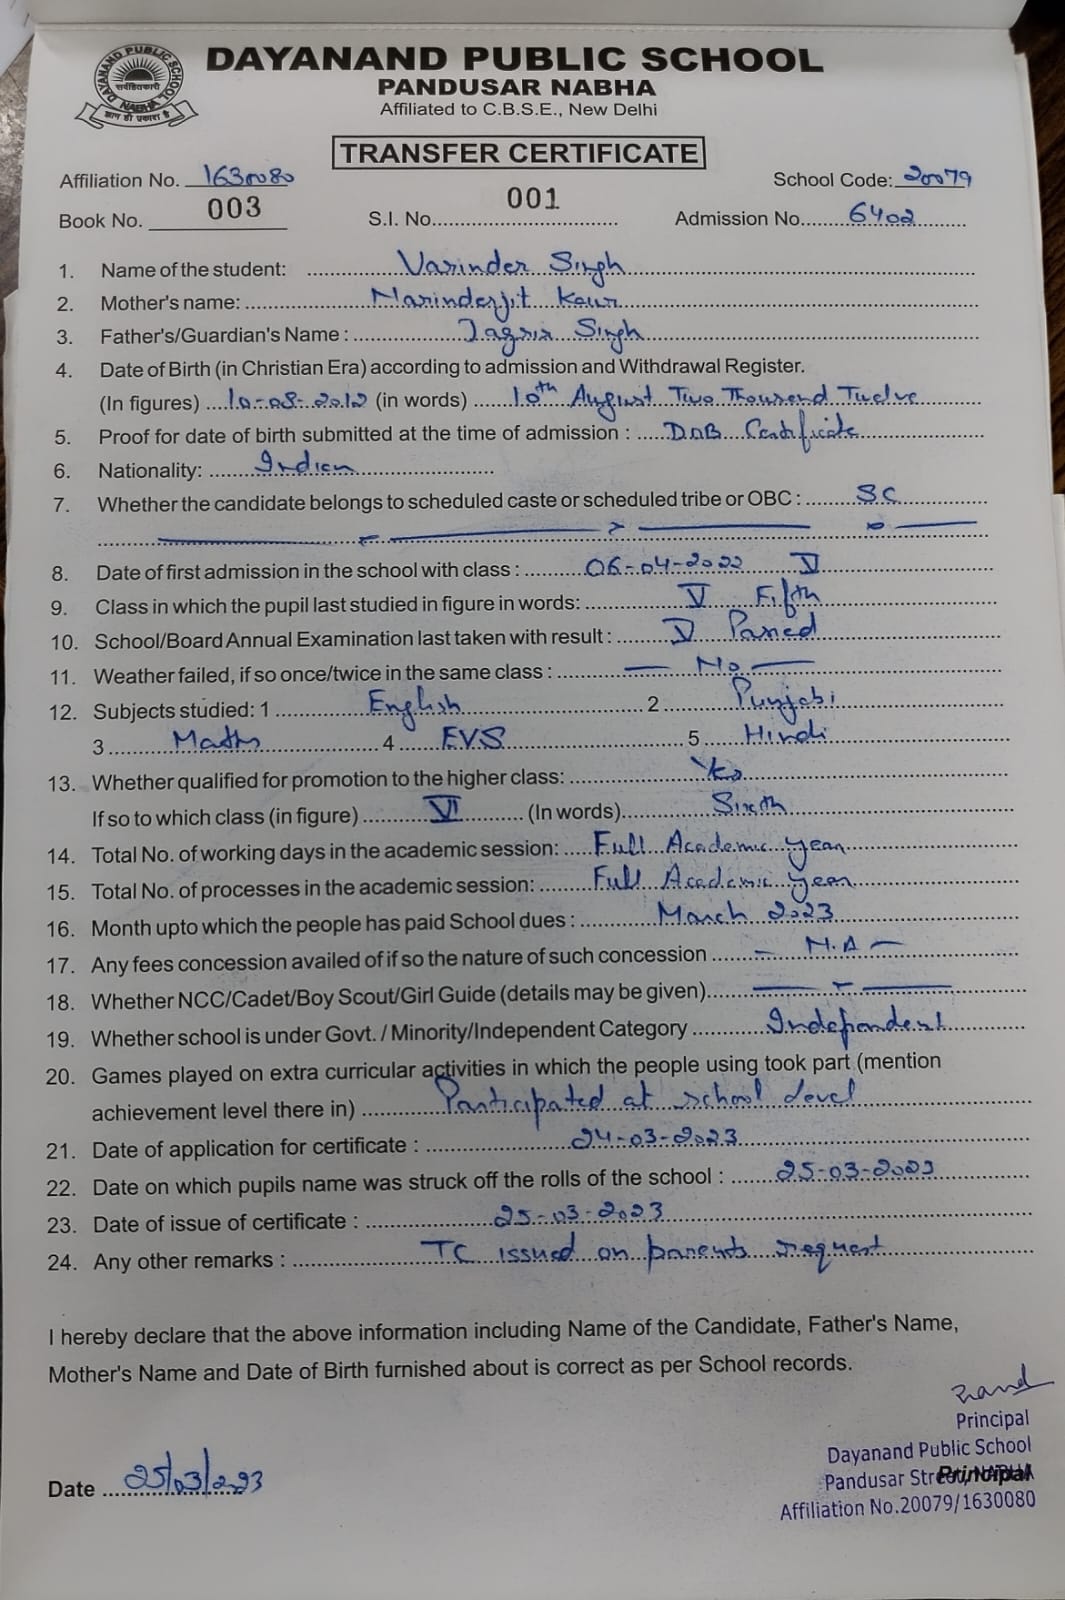 DAYANAND PUBLIC SCHOOL
PANDUSAR NABHA
Affiliated to C.B.S.E., New Delhi
DAYANAND PUBLIC SCHOOL
NABHA
TRANSFER CERTIFICATE
Affiliation No. 1630080 School Code: 20079
Book No. 003 S.I. No. 001 Admission No. 6402
1. Name of the student: Varinder Singh
2. Mother's name: Narinderjit Kaur
3. Father's/Guardian's Name : Jagsir Singh
4. Date of Birth (in Christian Era) according to admission and Withdrawal Register.
(In figures) 10-08-2012 (in words) 10th August Two Thousand Twelve
5. Proof for date of birth submitted at the time of admission : DOB Certificate
6. Nationality: Indian
7. Whether the candidate belongs to scheduled caste or scheduled tribe or OBC : SC
8. Date of first admission in the school with class : 06-04-2022 V
9. Class in which the pupil last studied in figure in words: V Fifth
10. School/Board Annual Examination last taken with result : V Passed
11. Weather failed, if so once/twice in the same class : — No —
12. Subjects studied: 1 English 2 Punjabi
3 Maths 4 EVS 5 Hindi
13. Whether qualified for promotion to the higher class: Yes
If so to which class (in figure) VI (In words) Sixth
14. Total No. of working days in the academic session: Full Academic year
15. Total No. of processes in the academic session: Full Academic year
16. Month upto which the people has paid School dues : March 2023
17. Any fees concession availed of if so the nature of such concession — N.A —
18. Whether NCC/Cadet/Boy Scout/Girl Guide (details may be given)
19. Whether school is under Govt. / Minority/Independent Category Independent
20. Games played on extra curricular activities in which the people using took part (mention
achievement level there in) Participated at school level
21. Date of application for certificate : 24-03-2023
22. Date on which pupils name was struck off the rolls of the school : 25-03-2023
23. Date of issue of certificate : 25-03-2023
24. Any other remarks : TC issued on parents request
I hereby declare that the above information including Name of the Candidate, Father's Name,
Mother's Name and Date of Birth furnished about is correct as per School records.
Principal
Dayanand Public School
Pandusar Street, NABHA
Principal
Affiliation No.20079/1630080
Date 25/03/2023